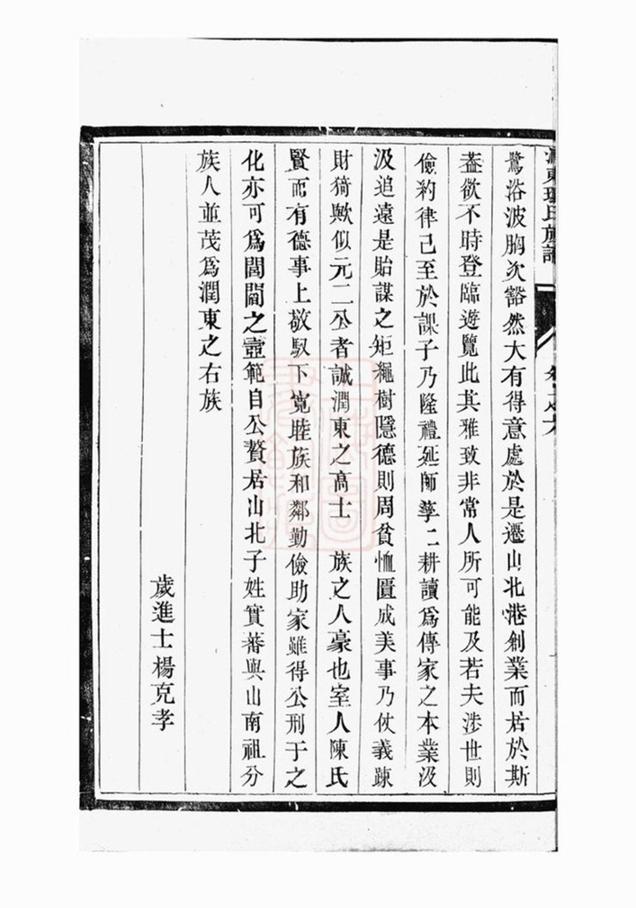 東 氏族譜
鷺浴波胸次豁然大有得意處於是遷山北港創業而居於斯
葢欲不時登臨遊覽此其雅致非常人所可能及若夫涉世則
儉約律己至於課子乃隆禮延師孳二耕讀爲傳家之本業汲
汲追遠是貽謀之矩繩樹隱德則周貧恤匱成美事乃仗義踈
財猗歟似元二公者誠潤東之高士 族之人豪也室人陳氏
賢而有德事上敬馭下寛睦族和鄰勤儉助家雖得公刑于之
化亦可爲閨閫之壼範自公贅居山北子姓實蕃與山南祖分
族人並茂爲潤東之右族
歲進士楊克孝